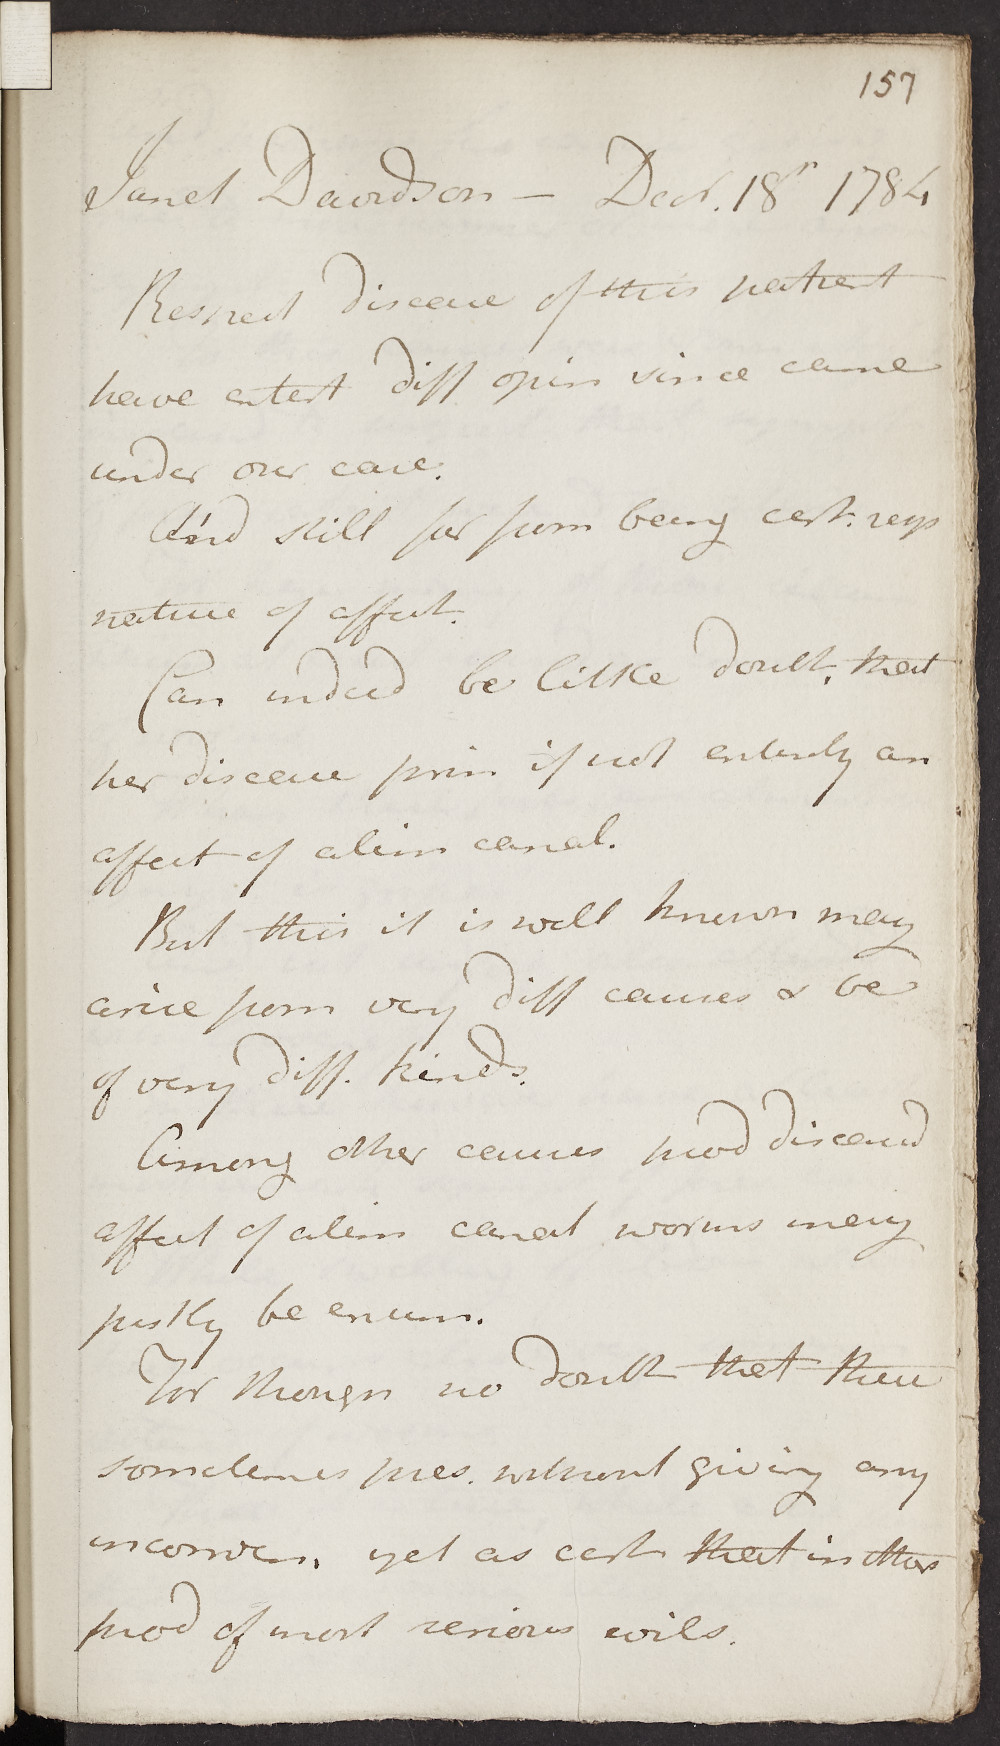 157
Janet Davidson – Decr. 18th 1784
Respect disease of this patient
have entert diff opin since came
under our care.
And still far from being cert. resp
nature of affect.
Can indeed be little doubt, that
her disease prin if not entirely an
affect of alim canal.
But this it is well known may
arise from very diff causes & be
of very diff. kinds.
Among other causes prod diseased
affect of alim canal worms may
justly be enum.
For though no doubt that these
sometimes pres. without giving any
inconven. yet as cert that in others
prod of most serious evils.